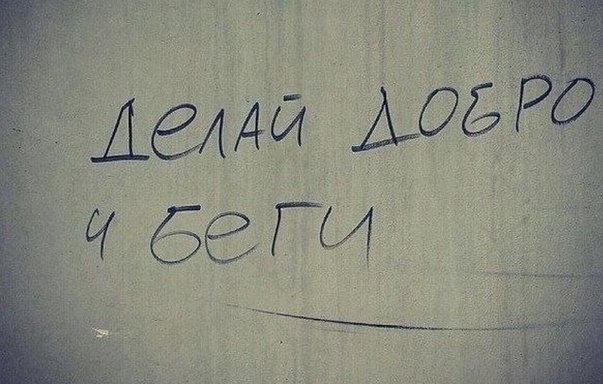 Делай ДОБРО
и беги